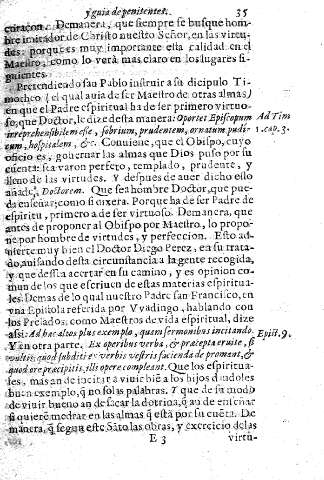 y guia de penitentes. 35
coraçon. Demanera, que siempre se busque hom-
bre imitador de Christo nuestro Señor, en las virtu-
des: porque es muy importante esta calidad en el
Maestro, como lo verà mas claro en los lugares si-
guientes.
Pretendiendo san Pablo instruir a su dicipulo Ti-
motheo (el qual auia de ser Maestro de otras almas)
en que el Padre espiritual ha de ser primero virtuo-
so, que Doctor, le dize desta manera: Oportet Episcopum
irreprehensibilem esse, sobrium, prudentem, ornatum pudi-
cum, hospitalem, &c. Conuiene, que el Obispo, cuyo
oficio es, gouernar las almas que Dios puso por su
cuenta: sea varon perfeto, templado, prudente, y
lleno de las virtudes. Y despues de auer dicho esso
añade, Doctorem. Que sea hombre Doctor, que pue-
da enseñar; como si dixera. Porque ha de ser Padre de
espiritu, primero a de ser virtuoso. Demanera, que
antes de proponer al Obispo por Maestro, lo propo-
ne por hombre de virtudes, y perfeccion. Esto ad-
uierte muy bien el Doctor Diego Perez, en su trata-
do, auisando desta circunstancia a la gente recogida,
y que dessea acertar en su camino, y es opinion co-
mun de los que escriuen de estas materias espiritua-
les. Demas de lo qual nuestro Padre san Francisco, en
vna Epistola referida por Vvadingo, hablando con
los Prelados; como Maestros de vida espiritual, dize
assi: Ad hæc altos plus exemplo, quam sermonibus incitando.
Y en otra parte. Ex operibus verba, & præcepta eruite, si
vultis, quod subditi ex verbis vestris facienda depromant, &
quod ore præcipitis, illi opere compleant. Que los espiritua-
les, mas an de incitar a viuir biē a los hijos dādoles
buen exemplo, q̄ no solas palabras. Y que de su modo
de viuir bueno an de sacar la dotrina, q̄ an de enseñar
si quierē medrar en las almas q̄ està por su cuēta. De
manera, q̄ segun este Sāto las obras, y exercicio de las
E 3 virtu-
Ad Tim
1. cap. 3.
Epist. 9.